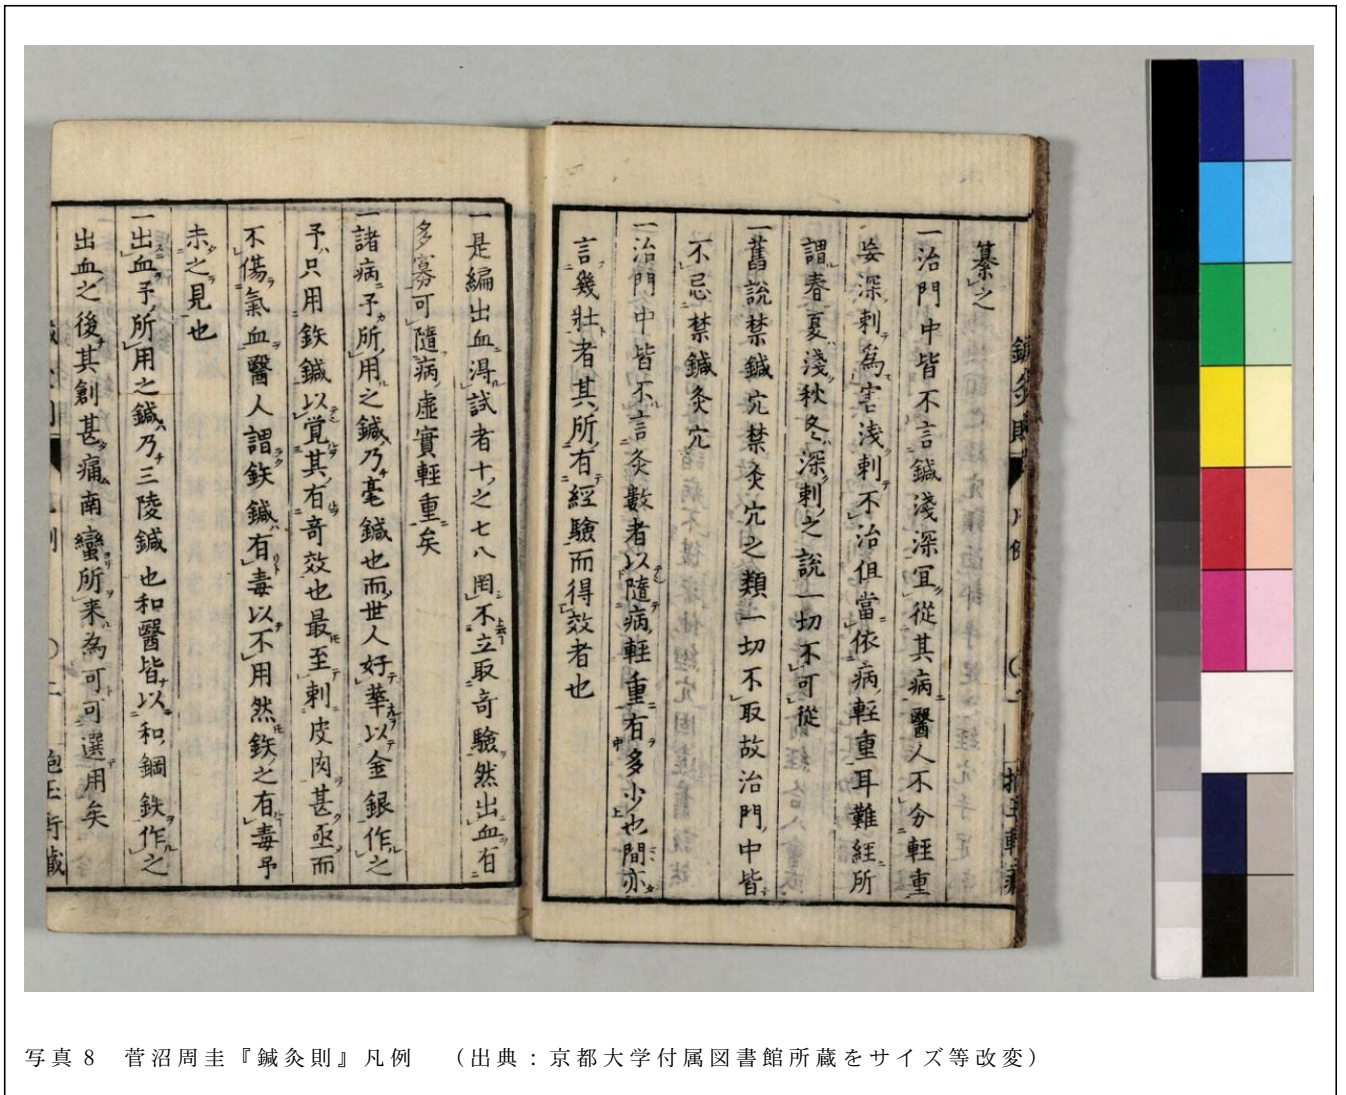 鍼灸則
凡例
纂之
一治門中皆不言鍼淺深冝從其病醫人不分軽重
妄深刺為害浅刺不治但當依病軽重耳難經所
謂春夏淺秋冬深刺之說一切不可從
一舊說禁鍼穴禁灸穴之類一切不取故治門中皆
不忌禁鍼灸穴
一治門中皆不言灸數者以隨病軽重有多少也間亦
言幾壮者其所有經驗而得效者也
一是編出血淂試者十之七八罔不立取竒驗然出血有
多寡可隨病虛實軽重矣
一諸病予所用之鍼乃毫鍼也而世人好華以金銀作之
予只用鉄鍼以覚其有竒效也最至刺皮肉甚亟而
不傷氣血醫人謂鉄鍼有毒以不用然鉄之有毒予
未之見也
一出血予所用之鍼乃三陵鍼也和醫皆以和鋼鉄作之
出血之後其創甚痛南蠻所来為可可選用矣
写真8　菅沼周圭『鍼灸則』凡例　（出典：京都大学付属図書館所蔵をサイズ等改変）